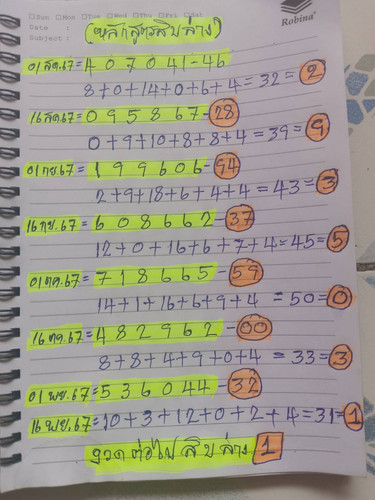 Sun Mon Tue Wed Thu Fri Sat
Robina
Date :
Subject :
(ผลสูตรสิบล่าง)
01 สค.67 = 407041-46
8+0+14+0+6+4=32=2
16 สค.67 = 095867-28
0+9+10+8+8+4=39=9
01 กย.67 = 199606-94
2+9+18+6+4+4=43=3
16 กย.67 = 608662-37
12+0+16+6+7+4=45=5
01 ตค.67 = 718665-59
14+1+16+6+9+4 =50=0
16 ตค.67 = 482962-00
8+8+4+9+0+4 =33=3
01 พย.67 = 536044-32
16 พย.67=10+3+12+0+2+4=31=1
งวดต่อไป สิบล่าง 1